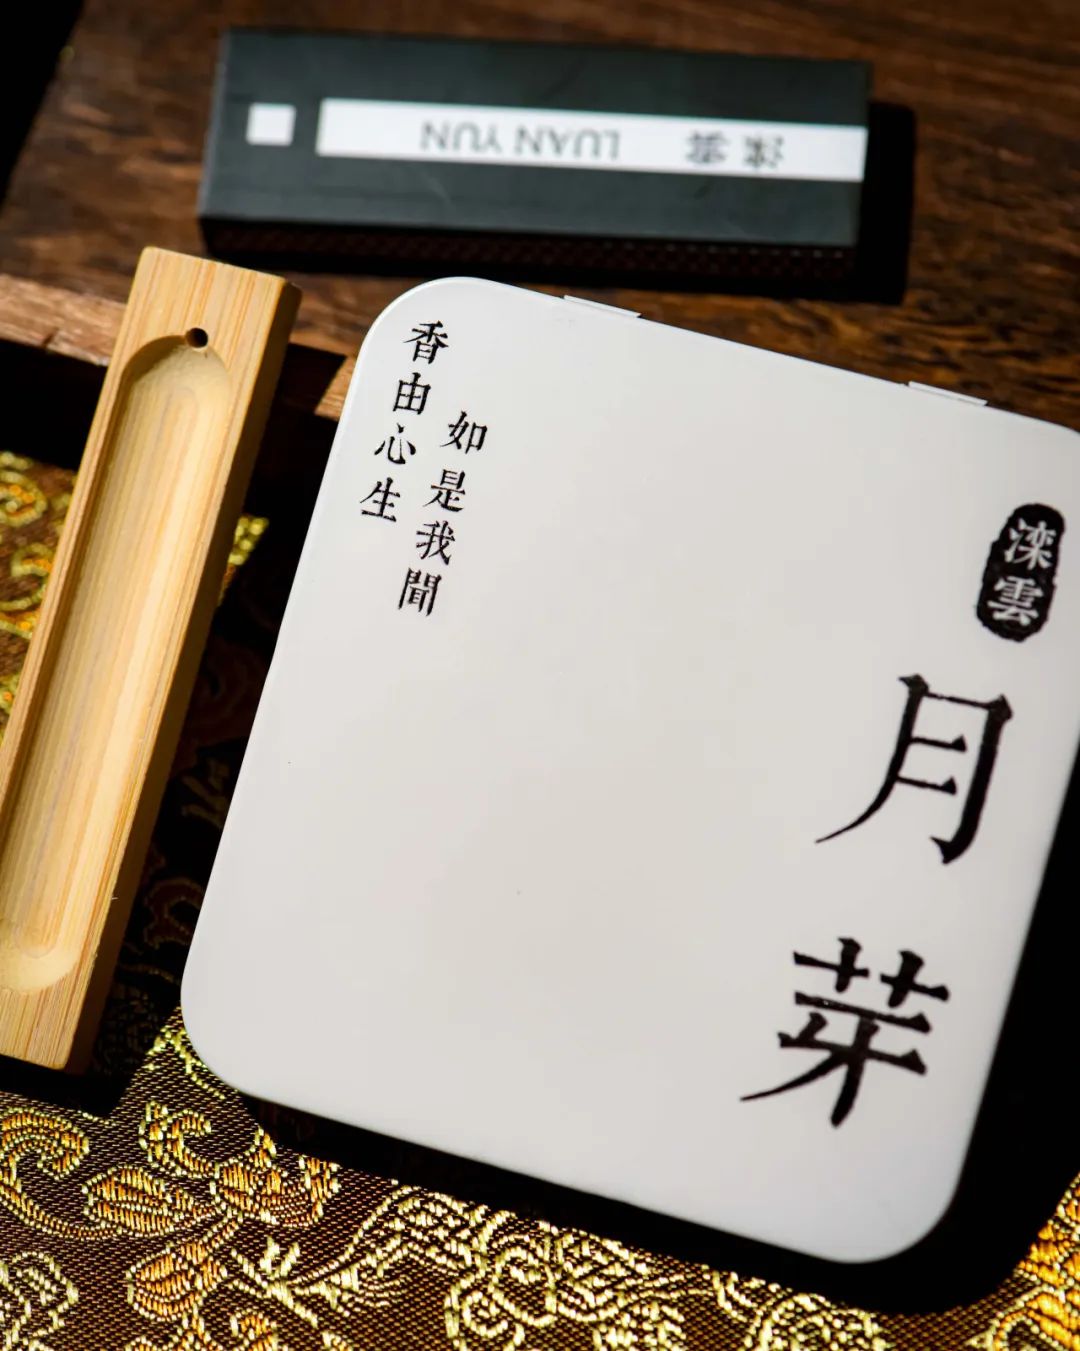 滦云 LUAN YUN
滦雲
月芽
如是我聞
香由心生